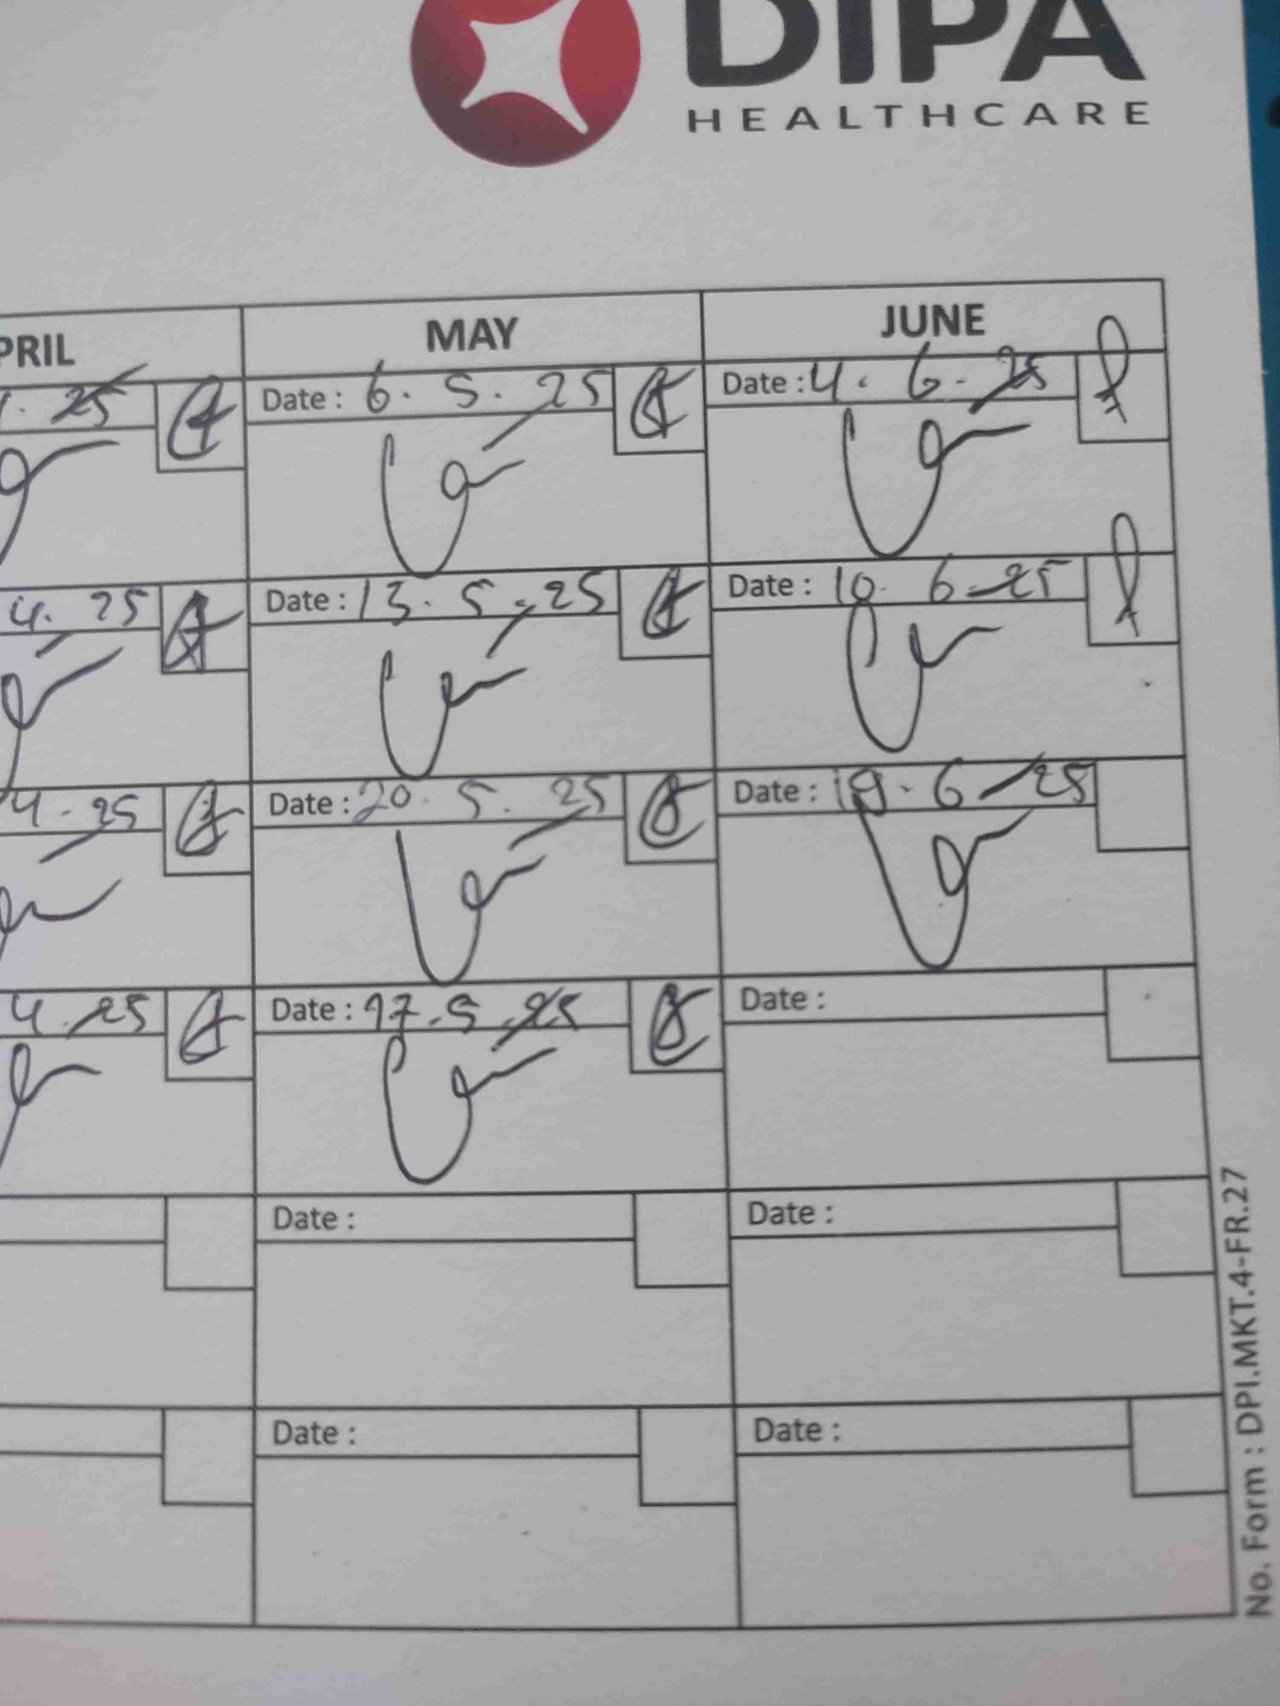 DIPA
HEALTHCARE
PRIL MAY JUNE
25 Date : 6. 5. 25 Date : 4. 6. 25
4. 25 Date : 13. 5. 25 Date : 10. 6 25
4. 25 Date : 20. 5. 25 Date : 19. 6 25
4. 25 Date : 27. 5. 25 Date :
Date : Date :
Date : Date :
No. Form : DPI.MKT.4-FR.27